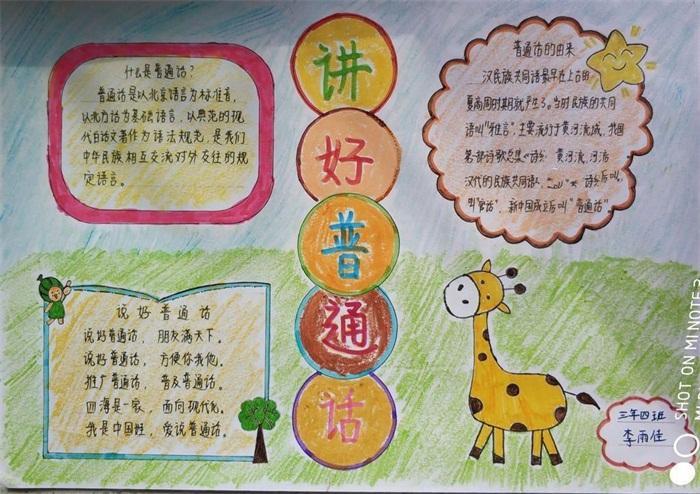 讲
好
普
通
话
什么是普通话?
普通话是以北京语言为标准音,
以北方话为基础语言,以典范的现
代白话文著作为语法规范,是我们
中华民族相互交流对外交往的规
定语言。
普通话的由来
汉民族共同语最早在上古的
夏商周时期就产生了。当时民族的共同
语叫"雅言",主要流行于黄河流域,我国
第一部诗歌总集《诗经
汉代的民族共同语
叫"官话",新中国成立后叫"普通话"。
说好普通话
说好普通话,朋友满天下。
说好普通话,方便你我他。
推广普通话,普及普通话。
四海是一家,面向现代化。
我是中国娃,爱说普通话。
三年四班
李雨佳
SHOT ON MI NOTE 3